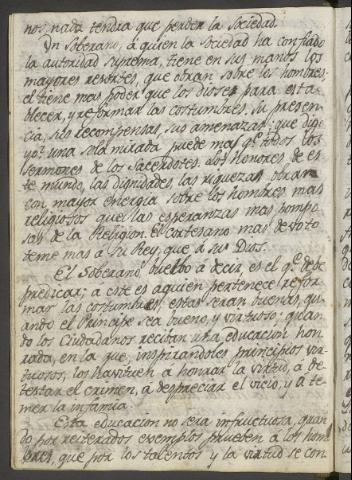 nos, nada tendria que perder la Sociedad.
Un Soberano, á quien la Sociedad ha confiado
la autoridad suprema, tiene en sus manos los
mayores resortes, que obran sobre los hombres;
el tiene mas poder que los Dioses para esta-
blecer, y reformar las costumbres. Su presen-
cia, sus recompensas, sus amenazas; que digo
yo? una sola mirada puede mas q.e todos los
sermones de los Sacerdotes. Los honores de es-
te mundo, las dignidades, las riquezas obran
con mayor energia sobre los hombres mas
religiosos que las esperanzas mas pompo-
sas de la Religion. El cortesano mas devoto
teme mas á su Rey, que á su Dios.
El Soberano buelbo a decir, es el q.e debe
predicar; a este es aquien pertenece refor-
mar las costumbres; estas seran buenas, qu-
ando el Principe sea bueno, y virtuoso; quan-
do los Ciudadanos reciban una educacion hon-
rada, en la que, inspirandoles principios vir-
tuosos, los habituen á honrar la virtud, á de-
testar el crimen, á despreciar el vicio, y á te-
mer la infamia.
Esta educacion no sera infructuosa, quan-
do por reiterados exemplos prueben a los hom-
bres, que por los talentos y la virtud se con